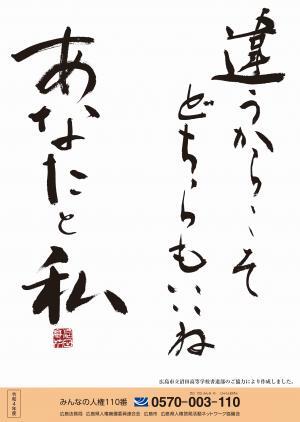 違うからこそ
どちらもいいね
あなたと私
広島市立沼田高等学校書道部のご協力により作成しました。
令和4年度
みんなの人権110番 0570-003-110
広島法務局 広島県人権擁護委員連合会 広島市 広島県人権啓発活動ネットワーク協議会